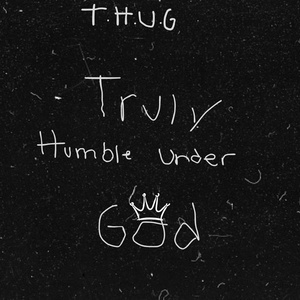 T.H.U.G
Truly
Humble under
God